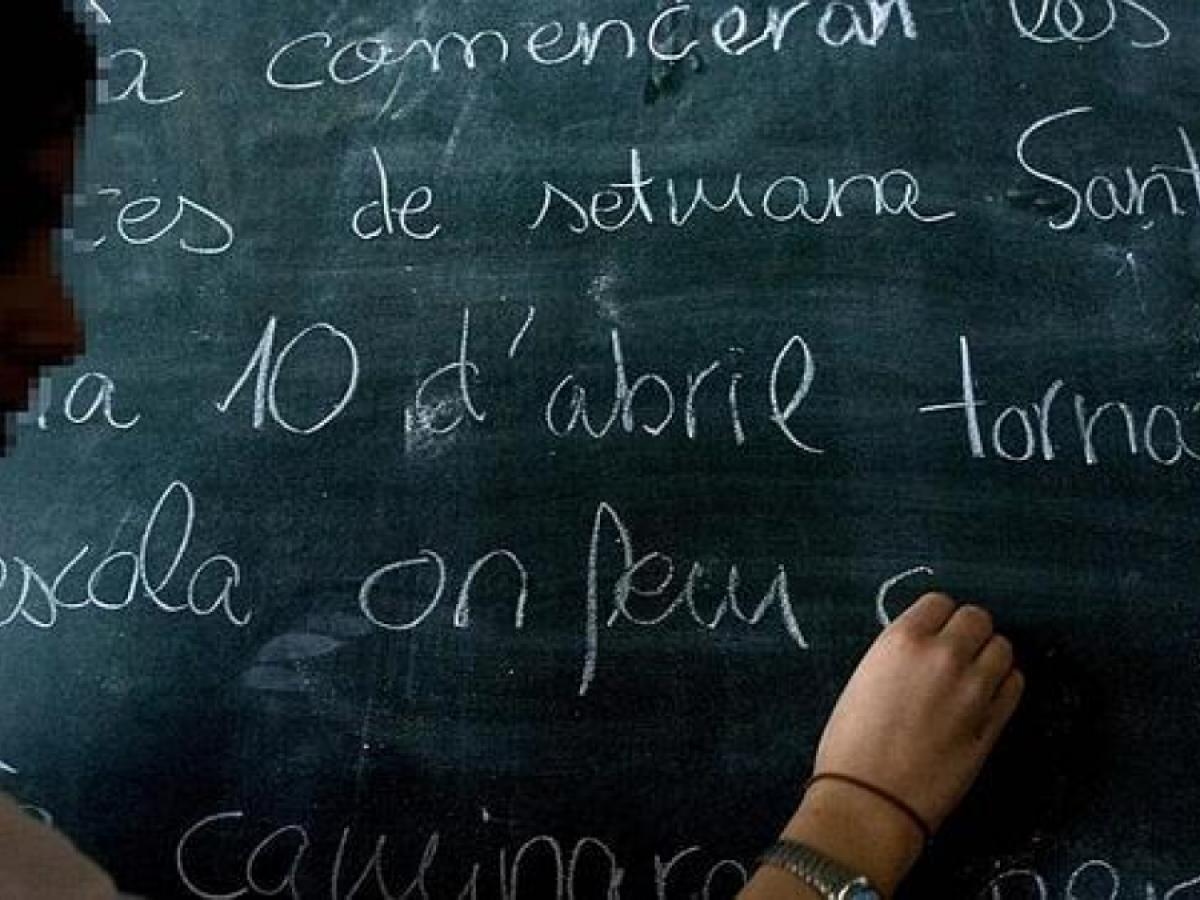 a començeran les
ces de setmana Sant
ia 10 d'abril torna
escola on feu c
caminra